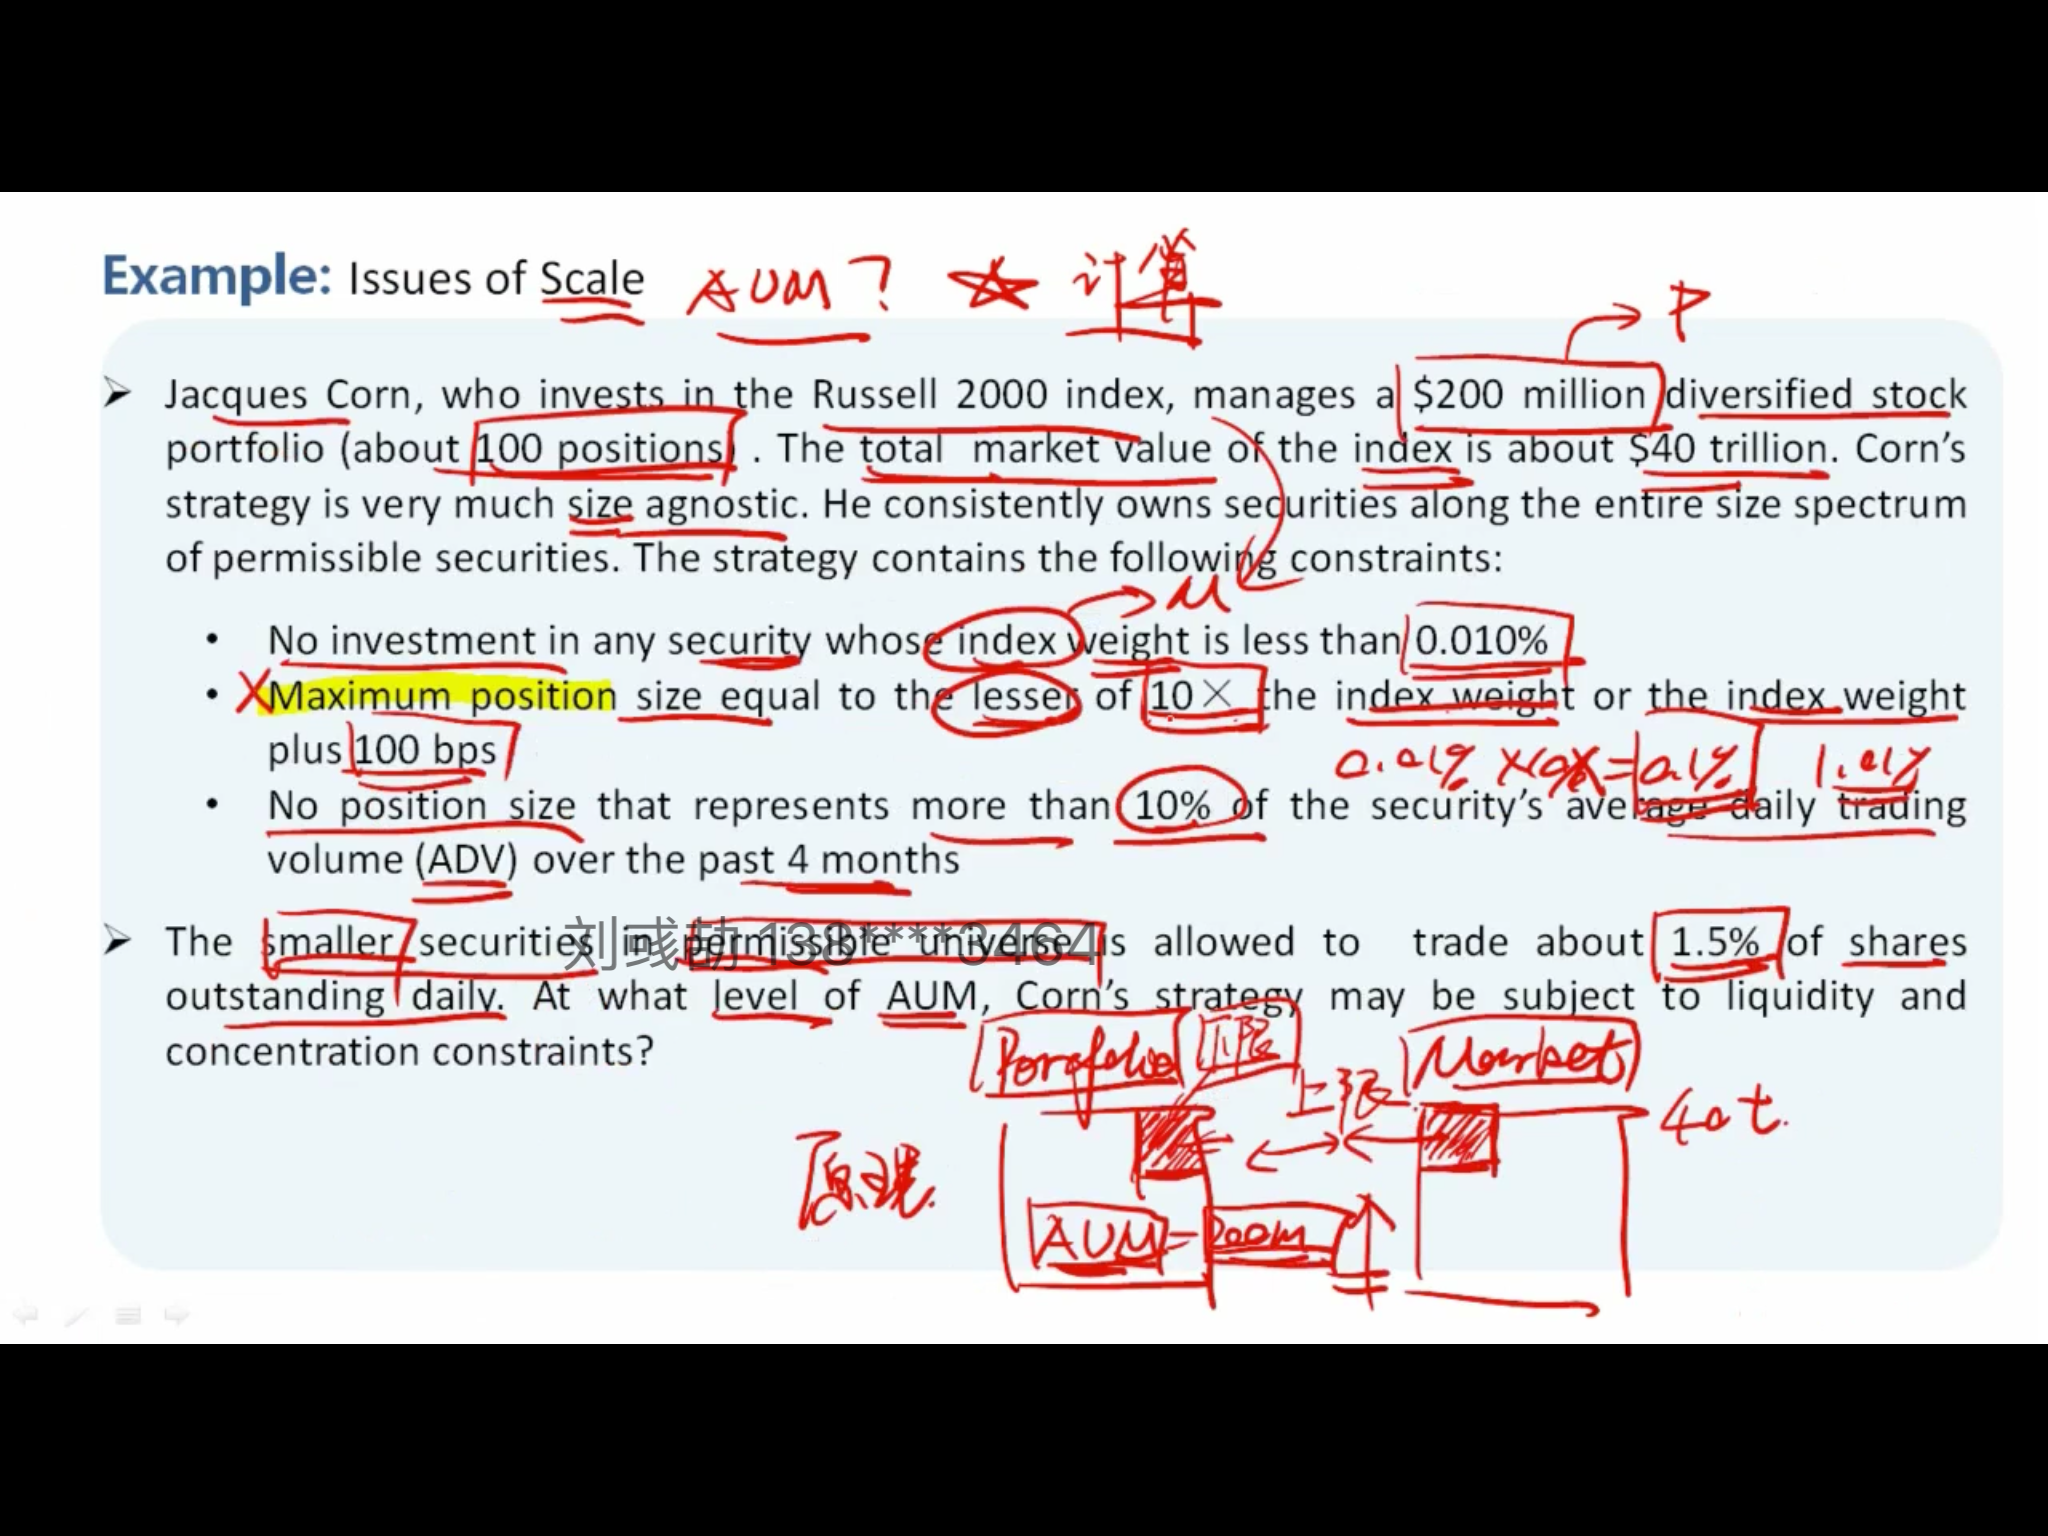 Example: Issues of Scale AUM? ☆ 计算
P
Jacques Corn, who invests in the Russell 2000 index, manages a $200 million diversified stock
portfolio (about 100 positions) . The total market value of the index is about $40 trillion. Corn's
strategy is very much size agnostic. He consistently owns securities along the entire size spectrum
of permissible securities. The strategy contains the following constraints:
M
• No investment in any security whose index weight is less than 0.010%
• Maximum position size equal to the lesser of 10× the index weight or the index weight
plus 100 bps
0.01% × 10X = 0.1% 1.01%
• No position size that represents more than 10% of the security's average daily trading
volume (ADV) over the past 4 months
The smaller securities in permissible universe is allowed to trade about 1.5% of shares
刘彧劼 138****3464
outstanding daily. At what level of AUM, Corn's strategy may be subject to liquidity and
concentration constraints?
下限 Market
上限
40t.
原理
AUM = 200m